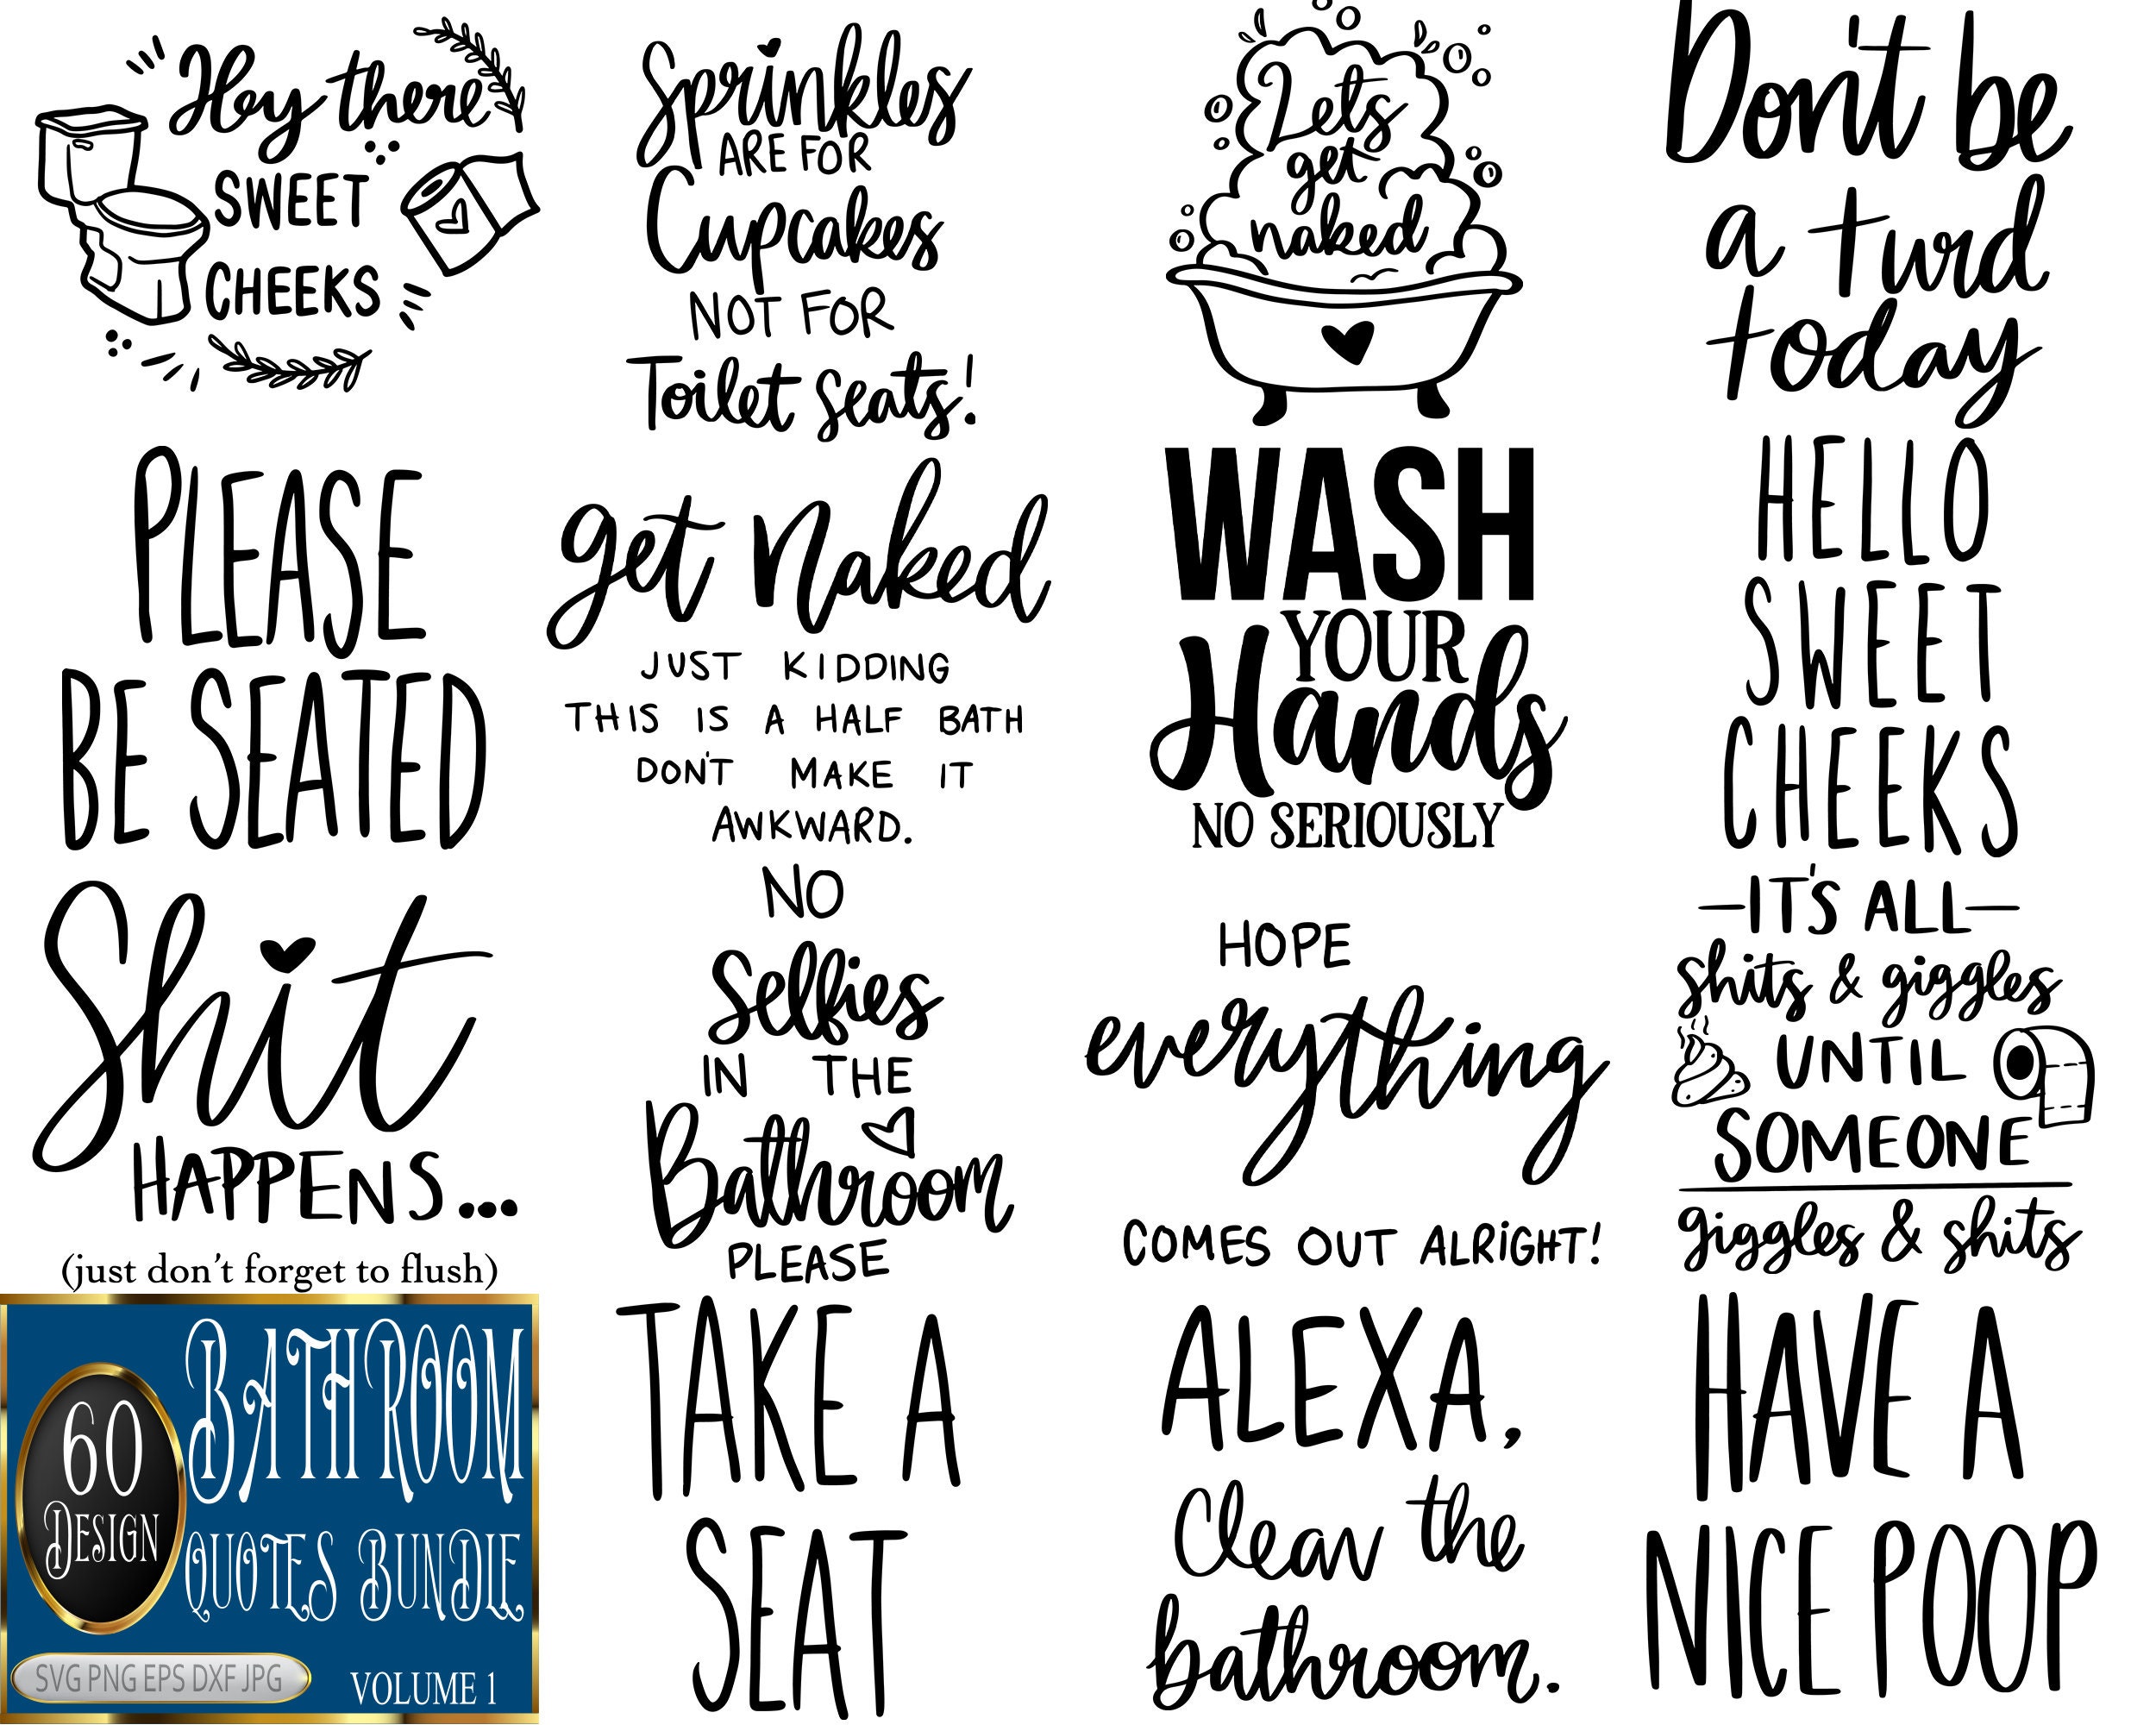 Hey there
SWEET
CHEEKS
Sprinkles
ARE FOR
Cupcakes
NOT FOR
Toilet Seats!
Lets
get
naked
Don't be
a turd
today
PLEASE
BE SEATED
get naked
JUST KIDDING
THIS IS A HALF BATH
DON'T MAKE IT
AWKWARD.
WASH
YOUR
Hands
NO SERIOUSLY
HELLO
SWEET
CHEEKS
Shit
HAPPENS...
(just don't forget to flush)
NO
Selfies
IN THE
Bathroom
PLEASE
HOPE
everything
COMES OUT ALRIGHT!
-IT'S ALL-
shits & giggles
UNTIL
SOMEONE
giggles & shits
60
DESIGN
BATHROOM
QUOTES BUNDLE
SVG PNG EPS DXF JPG
VOLUME 1
TAKE A
SEAT
ALEXA,
Clean the
bathroom.
HAVE A
NICE POOP